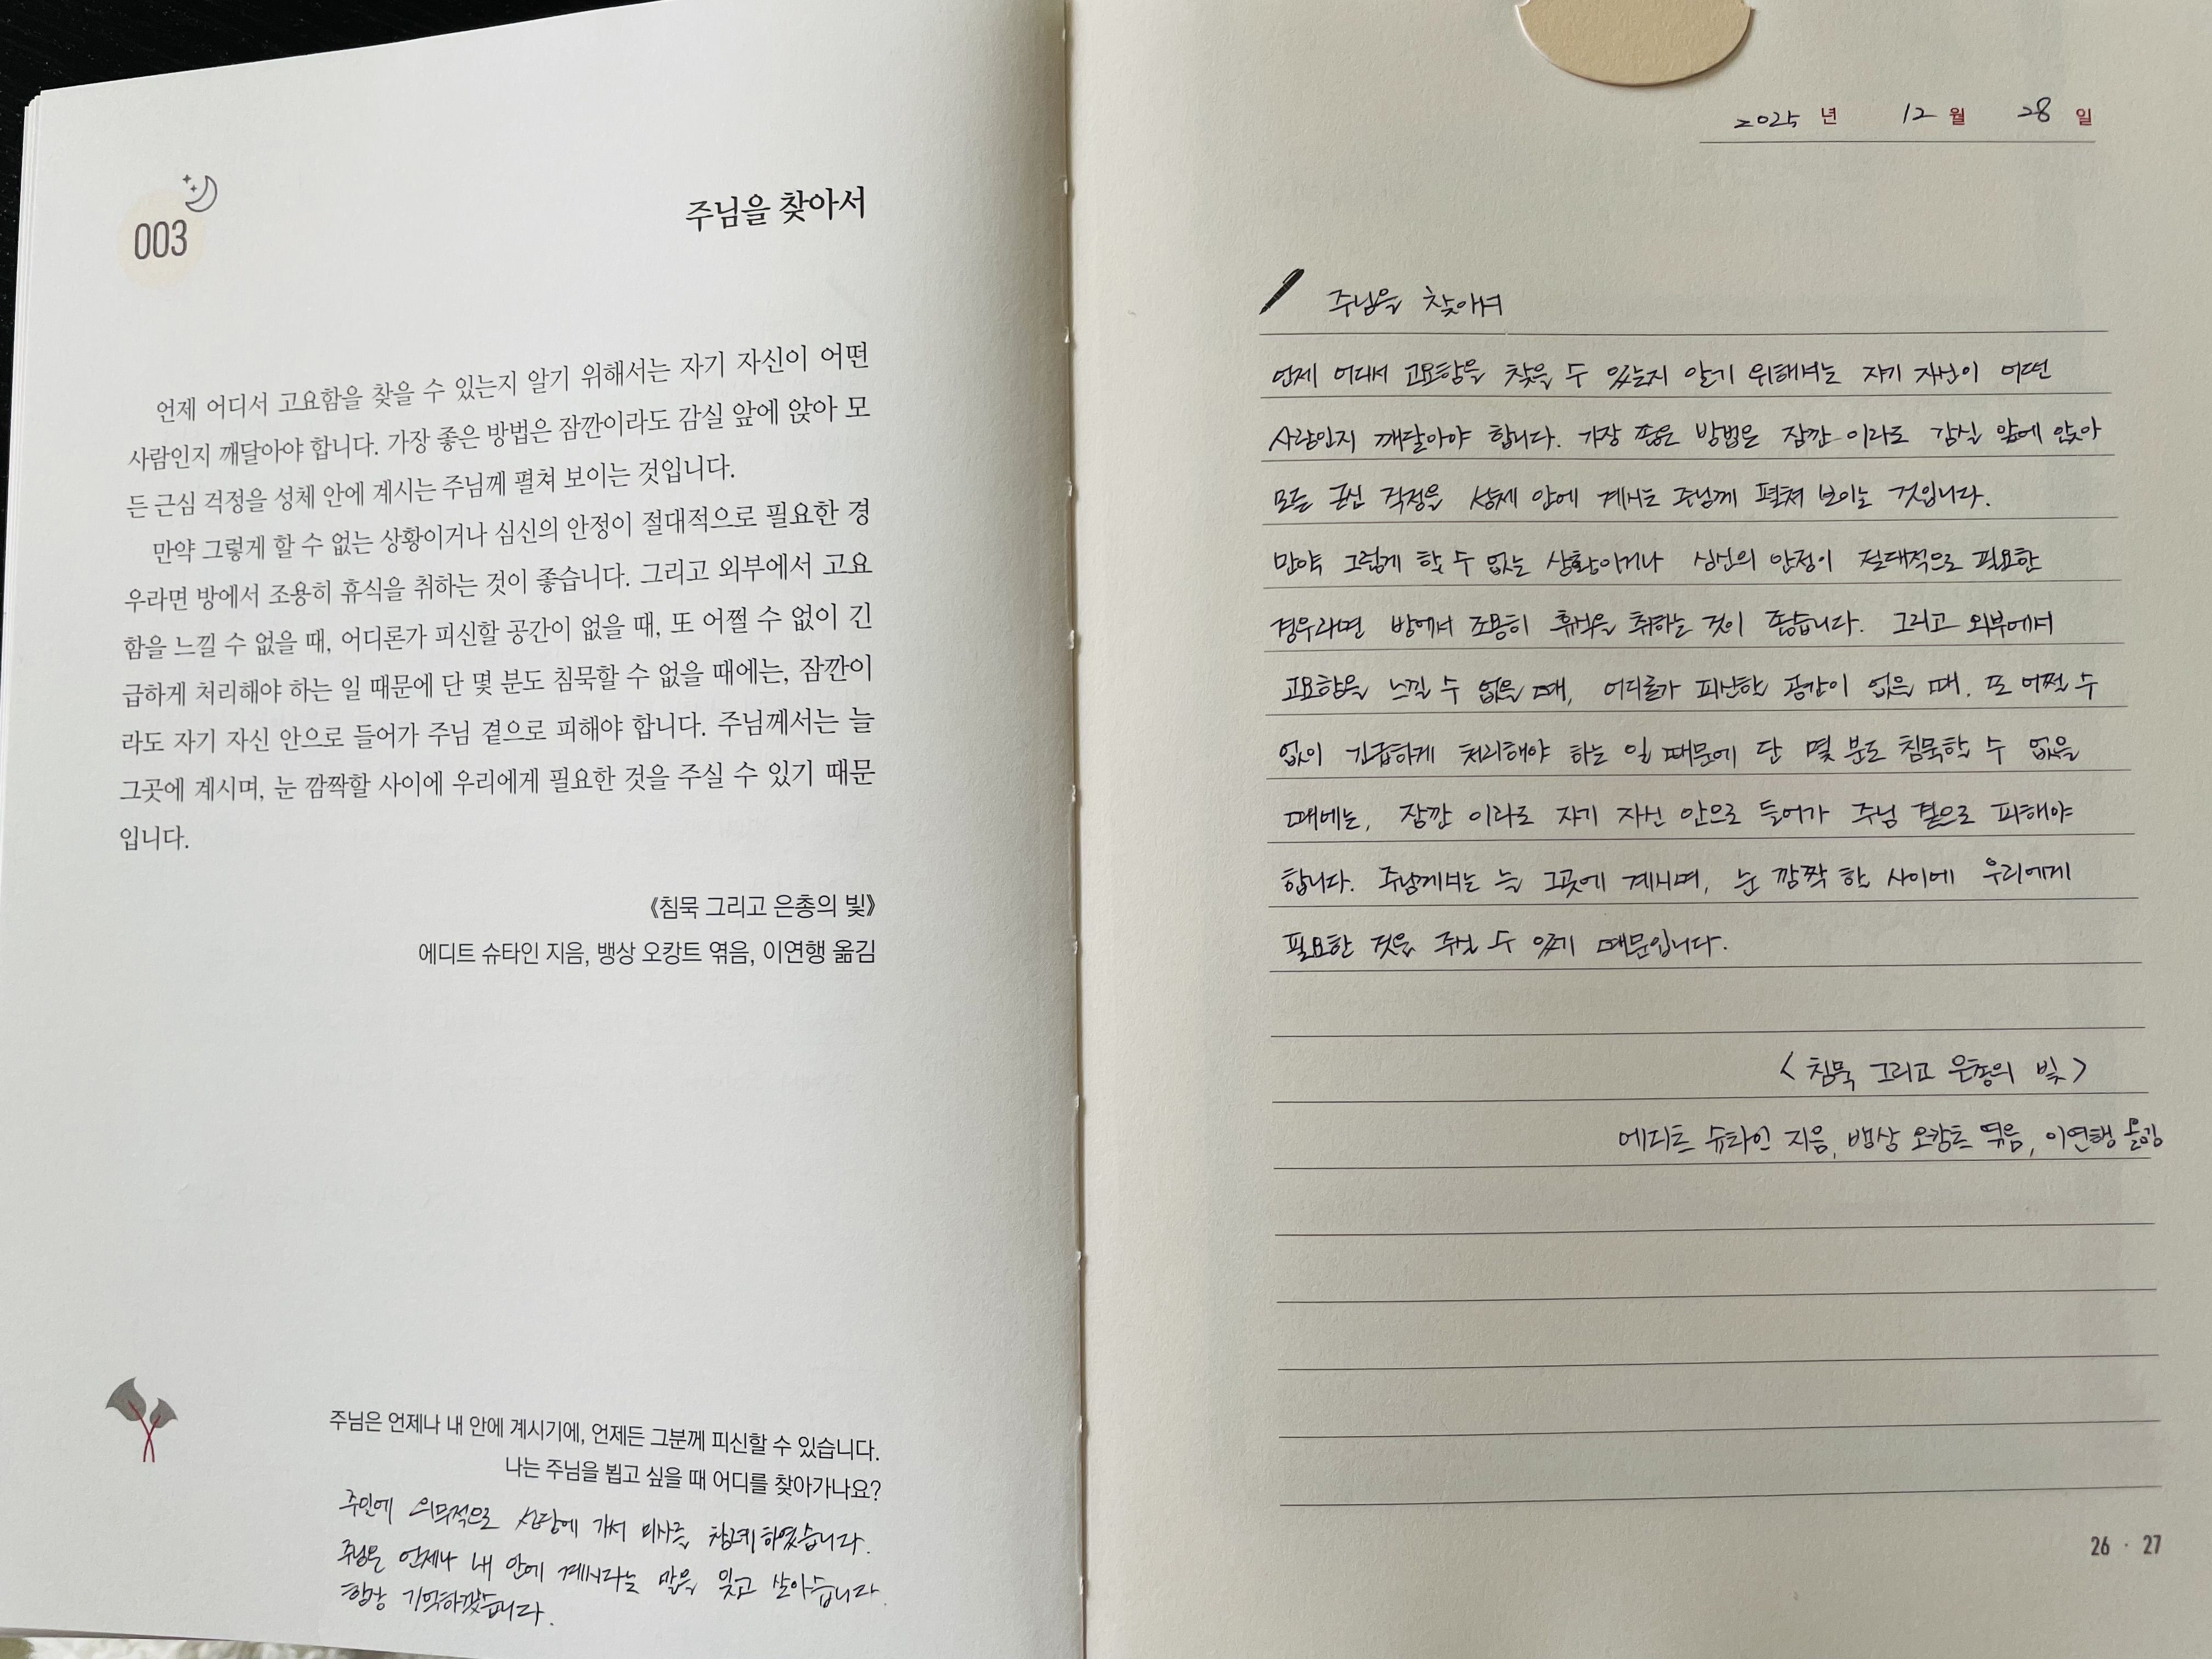 003
주님을 찾아서
언제 어디서 고요함을 찾을 수 있는지 알기 위해서는 자기 자신이 어떤
사람인지 깨달아야 합니다. 가장 좋은 방법은 잠깐이라도 감실 앞에 앉아 모
든 근심 걱정을 성체 안에 계시는 주님께 펼쳐 보이는 것입니다.
만약 그렇게 할 수 없는 상황이거나 심신의 안정이 절대적으로 필요한 경
우라면 방에서 조용히 휴식을 취하는 것이 좋습니다. 그리고 외부에서 고요
함을 느낄 수 없을 때, 어디론가 피신할 공간이 없을 때, 또 어쩔 수 없이 긴
급하게 처리해야 하는 일 때문에 단 몇 분도 침묵할 수 없을 때에는, 잠깐이
라도 자기 자신 안으로 들어가 주님 곁으로 피해야 합니다. 주님께서는 늘
그곳에 계시며, 눈 깜짝할 사이에 우리에게 필요한 것을 주실 수 있기 때문
입니다.
《침묵 그리고 은총의 빛》
에디트 슈타인 지음, 뱅상 오캉트 엮음, 이연행 옮김
주님은 언제나 내 안에 계시기에, 언제든 그분께 피신할 수 있습니다.
나는 주님을 뵙고 싶을 때 어디를 찾아가나요?
주일에 의무적으로 성당에 가서 미사를 참례하였습니다.
주님은 언제나 내 안에 계시다는 말을 잊고 살아습니다.
항상 기억하겠습니다.
2025 년 12 월 28 일
주님을 찾아서
언제 어디서 고요함을 찾을 수 있는지 알기 위해서는 자기 자신이 어떤
사람인지 깨달아야 합니다. 가장 좋은 방법은 잠깐 이라도 감실 앞에 앉아
모든 근심 걱정을 성체 안에 계시는 주님께 펼쳐 보이는 것입니다.
만약 그렇게 할 수 없는 상황이거나 심신의 안정이 절대적으로 필요한
경우라면 방에서 조용히 휴식을 취하는 것이 좋습니다. 그리고 외부에서
고요함을 느낄 수 없을 때, 어디론가 피신할 공간이 없을 때. 또 어쩔 수
없이 긴급하게 처리해야 하는 일 때문에 단 몇 분도 침묵할 수 없을
때에는, 잠깐 이라도 자기 자신 안으로 들어가 주님 곁으로 피해야
합니다. 주님께서는 늘 그곳에 계시며, 눈 깜짝 할 사이에 우리에게
필요한 것을 주실 수 있기 때문입니다.
<침묵 그리고 은총의 빛>
에디트 슈타인 지음, 뱅상 오캉트 엮음, 이연행 옮김
26 · 27